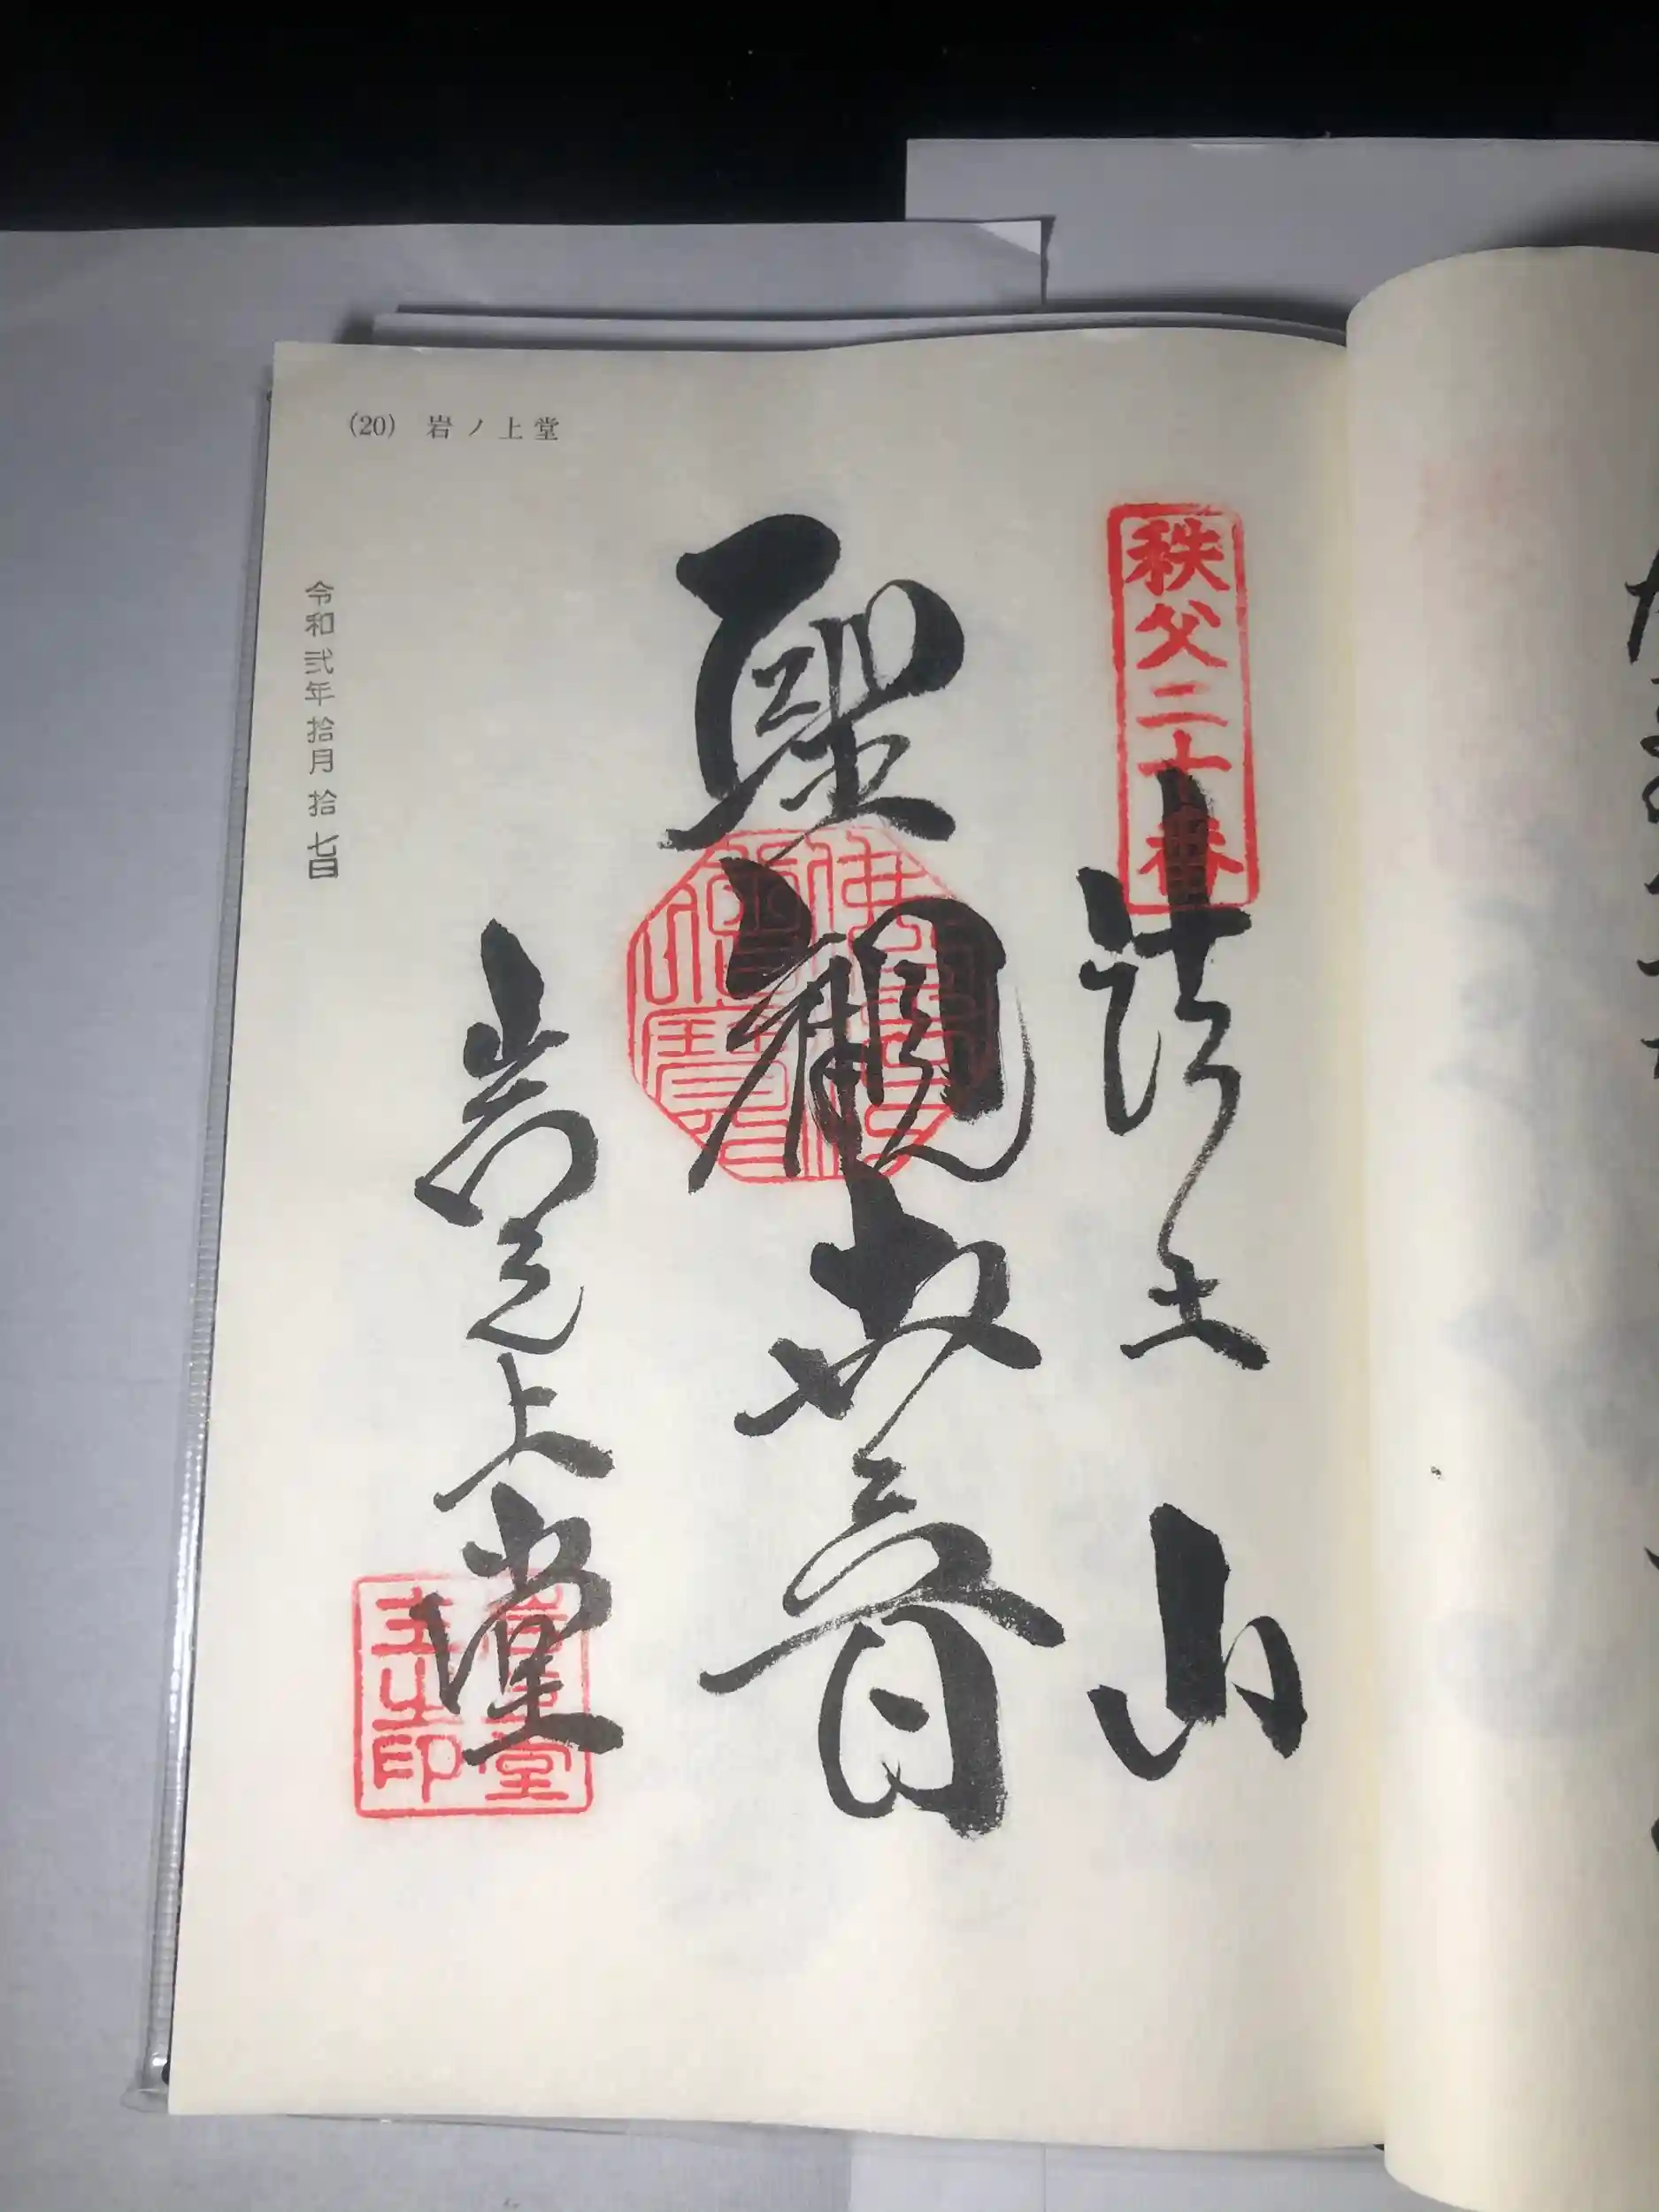 (20) 岩ノ上堂
秩父二十番
法王山
聖観世音
岩之上堂
令和弐年拾月拾七日